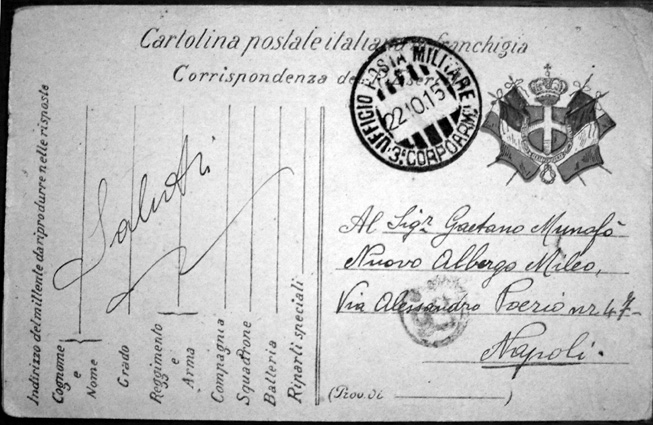 Cartolina postale italiana in franchigia
Corrispondenza del
UFFICIO POSTA MILITARE
22.10.15
3° CORPO ARM
Indirizzo del mittente da riprodurre nelle risposte
Cognome
e
Nome
Grado
Reggimento
e
Arma
Compagnia
Squadrone
Batteria
Riparti speciali
Saluti
Al Sigr Gaetano Munafò
Nuovo Albergo Mileo,
Via Alessandro Poerio nr. 47-
Napoli.
(Prov. di